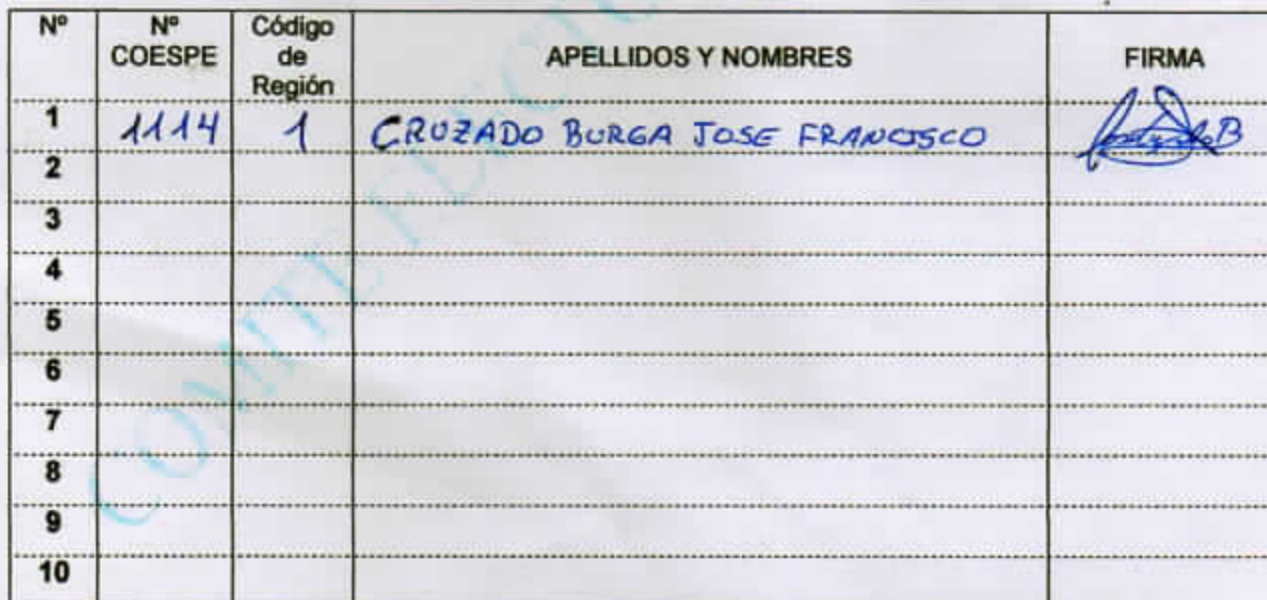 Nº Nº COESPE Código de Región APELLIDOS Y NOMBRES FIRMA
1 1114 1 CRUZADO BURGA JOSE FRANCISCO
2
3
4
5
6
7
8
9
10
COMITE